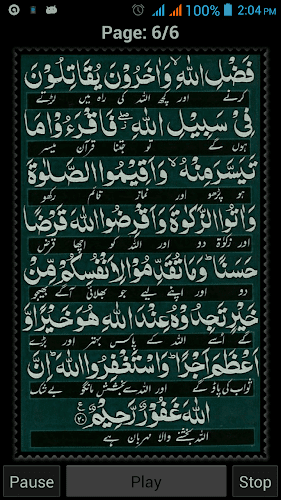 100% 2:04 PM
Page: 6/6
فَضْلِ اللّٰهِ ۙ وَاٰخَرُوْنَ يُقَاتِلُوْنَ
کرنے اور کچھ اللہ کی راہ میں لڑتے
فِيْ سَبِيْلِ اللّٰهِ ۖ فَاقْرَءُوْا مَا
ہوں گے تو جتنا قرآن میسر
تَيَسَّرَ مِنْهُ ۙ وَاَقِيْمُوا الصَّلٰوةَ
ہو پڑھو اور نماز قائم رکھو
وَاٰتُوا الزَّكٰوةَ وَاَقْرِضُوا اللّٰهَ قَرْضًا
اور زکوٰۃ دو اور اللہ کو اچھا قرض
حَسَنًا ؕ وَمَا تُقَدِّمُوْا لِاَنْفُسِكُمْ مِّنْ
دو اور اپنے لیے جو بھلائی آگے بھیجو
خَيْرٍ تَجِدُوْهُ عِنْدَ اللّٰهِ هُوَ خَيْرًا وَّ
گے اسے اللہ کے پاس بہتر اور بڑے
اَعْظَمَ اَجْرًا ؕ وَاسْتَغْفِرُوا اللّٰهَ ؕ اِنَّ
ثواب کی پاؤ گے اور اللہ سے بخشش مانگو بےشک
اللّٰهَ غَفُوْرٌ رَّحِيْمٌ ۟ ع ٢٠
اللہ بخشنے والا مہربان ہے
Pause Play Stop